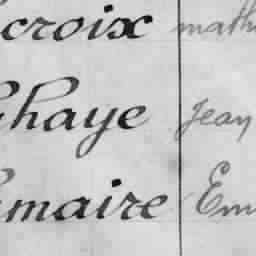 croix math
haye Jean
maire Em